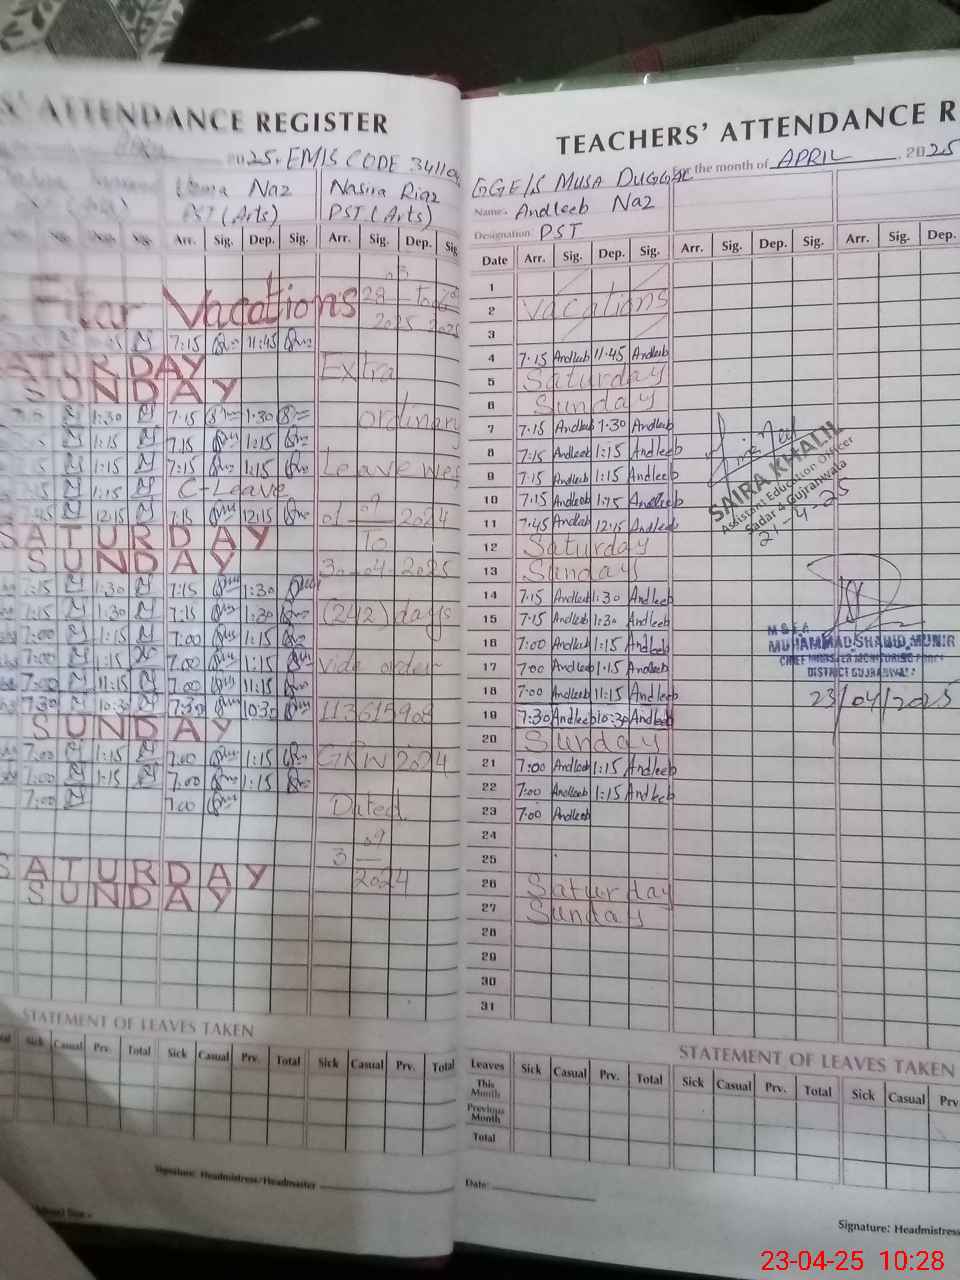 S' ATTENDANCE REGISTER
2025. EMIS CODE 341104
Uzma Naz
PST (Arts)
Nasira Riaz
PST (Arts)
Arr. Sig. Dep. Sig. Arr. Sig. Dep. Sig
Fitar Vacations 28 03 To 6
2025 2025
7:15 11:45
SATURDAY Extra
SUNDAY
1:30 7.15 1.30 ordinary
1:15 7.15 1:15
1:15 7:15 1:15 Leave wef
1:15 C-Leave
12:15 7:15 12:15 01 09 2024
SATURDAY To
SUNDAY 30-04-2025
7:15 1:30 7:15 1:30
7:15 1:30 7:15 1:30 (242) days
7:00 1:15 7:00 1:15
7:00 1:15 7.00 1:15 vide order
7:00 11:15 7.00 11:15
7:30 10:30 7:30 10:30 113615908
SUNDAY
7.00 1:15 7.00 1:15 GRW 2024
7:00 1:15 7.00 1:15
7:00 7.00 Dated
3 09
SATURDAY 2024
SUNDAY
STATEMENT OF LEAVES TAKEN
Sick Casual Prv. Total Sick Casual Prv. Total Sick Casual Prv. Total
Signature: Headmistress/Headmaster
TEACHERS' ATTENDANCE R
GGE/S MUSA DUGGAL For the month of APRIL, 2025
Name: Andleeb Naz
Designation PST
Date Arr. Sig. Dep. Sig. Arr. Sig. Dep. Sig. Arr. Sig. Dep.
1
2 Vacations
3
4 7.15 Andleeb 11.45 Andleeb
5 Saturday
6 Sunday
7 7.15 Andleeb 1.30 Andleeb
8 7:15 Andleeb 1:15 Andleeb
9 7:15 Andleeb 1:15 Andleeb
10 7:15 Andleeb 1:15 Andleeb
11 7.45 Andleeb 12:15 Andleeb
12 Saturday
13 Sunday
14 7.15 Andleeb 1:30 Andleeb
15 7.15 Andleeb 1:30 Andleeb
16 7:00 Andleeb 1:15 Andleeb
17 7:00 Andleeb 1.15 Andleeb
18 7:00 Andleeb 11:15 Andleeb
19 7:30 Andleeb 10:30 Andleeb
20 Sunday
21 7:00 Andleeb 1:15 Andleeb
22 7:00 Andleeb 1:15 Andleeb
23 7:00 Andleeb
24
25
26 Saturday
27 Sunday
28
29
30
31
SAIRA KHALIL
Assistant Education Officer
Sadar 4 Gujranwala
21-4-25
MUHAMMAD SHAHID MUNIR
CHIEF MINISTER MONITORING FORCE
DISTRICT GUJRANWALA
23/04/2025
STATEMENT OF LEAVES TAKEN
Leaves Sick Casual Prv. Total Sick Casual Prv. Total Sick Casual Prv
This Month
Previous Month
Total
Date:
Signature: Headmistress
23-04-25 10:28